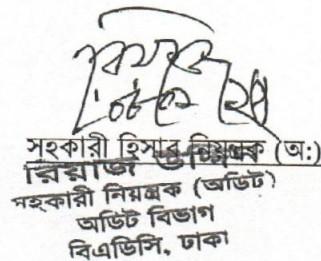 সহকারী হিসাব নিয়ন্ত্রক (অ:)
রিয়াজ উদ্দিন
সহকারী নিয়ন্ত্রক (অডিট)
অডিট বিভাগ
বিএডিসি, ঢাকা